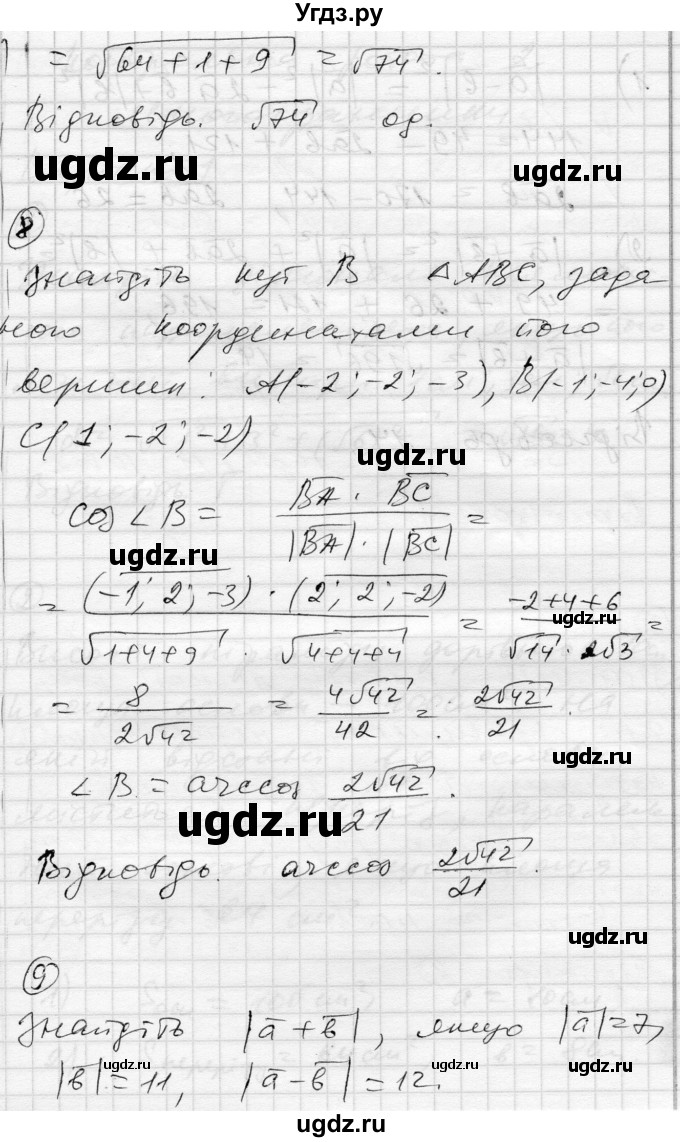 Угдз.ру
= √(64+1+9) = √74.
Відповідь. √74 од.
ugdz.ru
ugdz.ru
8
Знайдіть кут В △ABC, зада
ного координатами його
вершин: A(-2; -2; -3), B(-1; -4; 0)
C(1; -2; -2)
ugdz.ru
cos∠B = (BA · BC) / (|BA| · |BC|) =
ugdz.ru
= (-1; 2; -3) · (2; 2; -2) / (√(1+4+9) · √(4+4+4)) = (-2+4+6) / (√14 · 2√3) =
= 8 / (2√42) = 4√42 / 42 = 2√42 / 21.
ugdz.ru
∠B = arccos 2√42 / 21.
ugdz.ru
Відповідь. arccos 2√42 / 21.
ugdz.ru
9
Знайдіть |a + b|, якщо |a| = 7,
|b| = 11, |a - b| = 12.
ugdz.ru
ugdz.ru